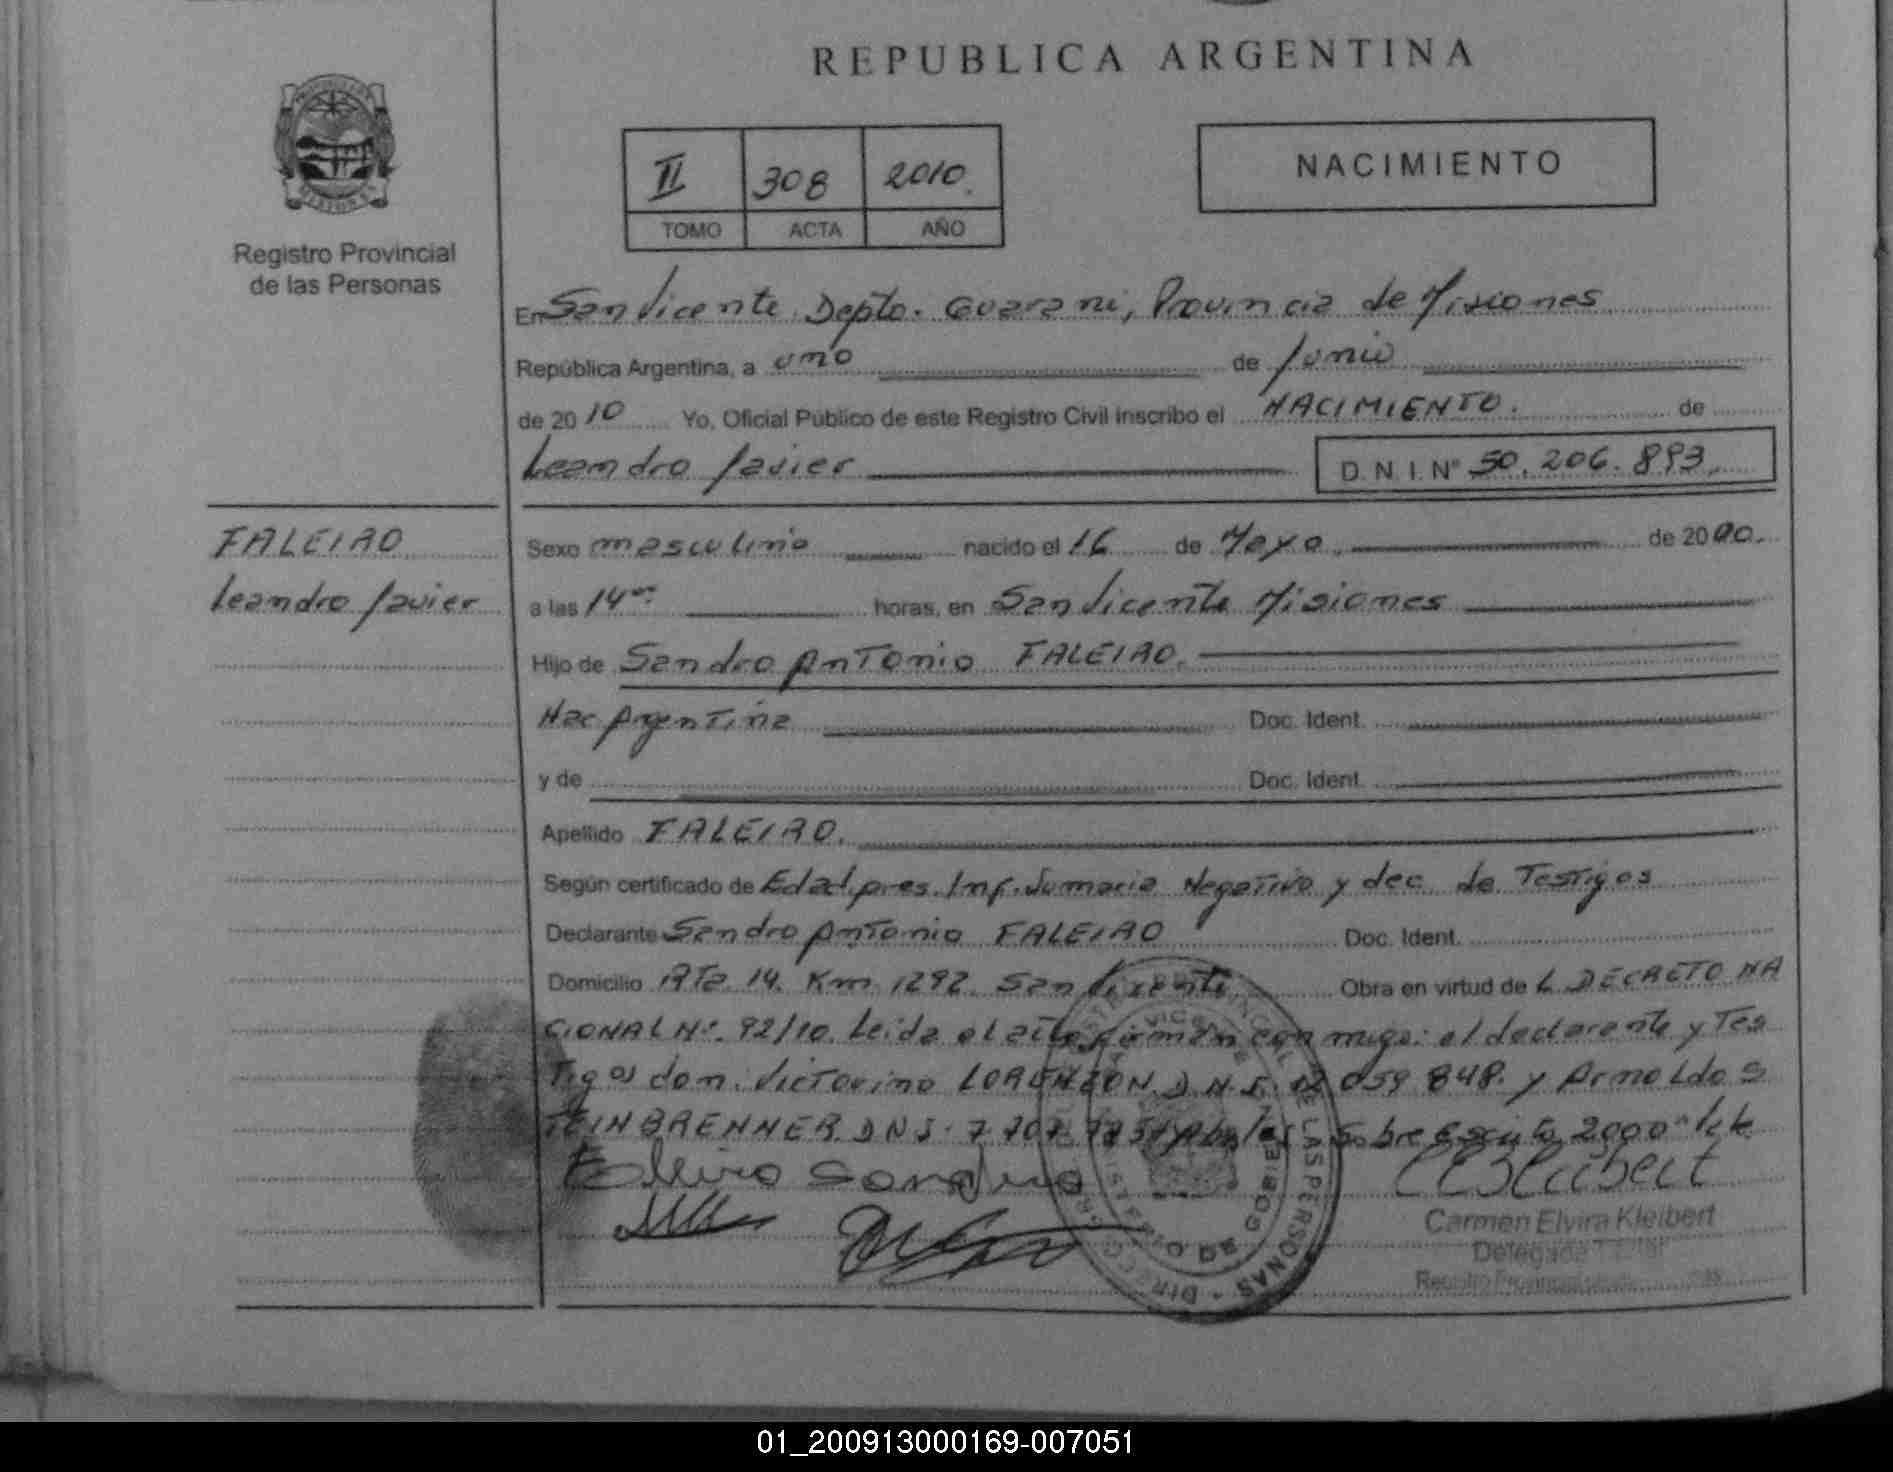 REPUBLICA ARGENTINA
Registro Provincial
de las Personas
II 308 2010.
TOMO ACTA AÑO
NACIMIENTO
En San Vicente Depto. Guarani, Provincia de Misiones
República Argentina, a uno de Junio
de 2010 Yo, Oficial Público de este Registro Civil inscribo el NACIMIENTO. de
Leandro Javier D.N.I. Nº 50.206.893
FALEIRO
Leandro Javier
Sexo masculino nacido el 16 de Mayo de 2000.
a las 14 horas, en San Vicente Misiones
Hijo de Sandro Antonio FALEIRO.
Nac Argentina Doc. Ident.
y de Doc. Ident.
Apellido FALEIRO.
Según certificado de Edad pres. Inf. Sumaria Negativo y dec de Testigos
Declarante Sandro Antonio FALEIRO Doc. Ident.
Domicilio RTa. 14. Km 1292. San Vicente Obra en virtud de L DECRETO NA
CIONAL Nº. 92/10. Leida el acta firman con migo: el declarante y Tes
Tigos don. Victorino D.N.I. 059 848. y Arnoldo S
TEINBRENNER. DNI. 7 707 Sobre escrito 2000
Sandro
Carmen Elvira Kleibert
Delegada Titular
Registro Provincial
01_200913000169-007051